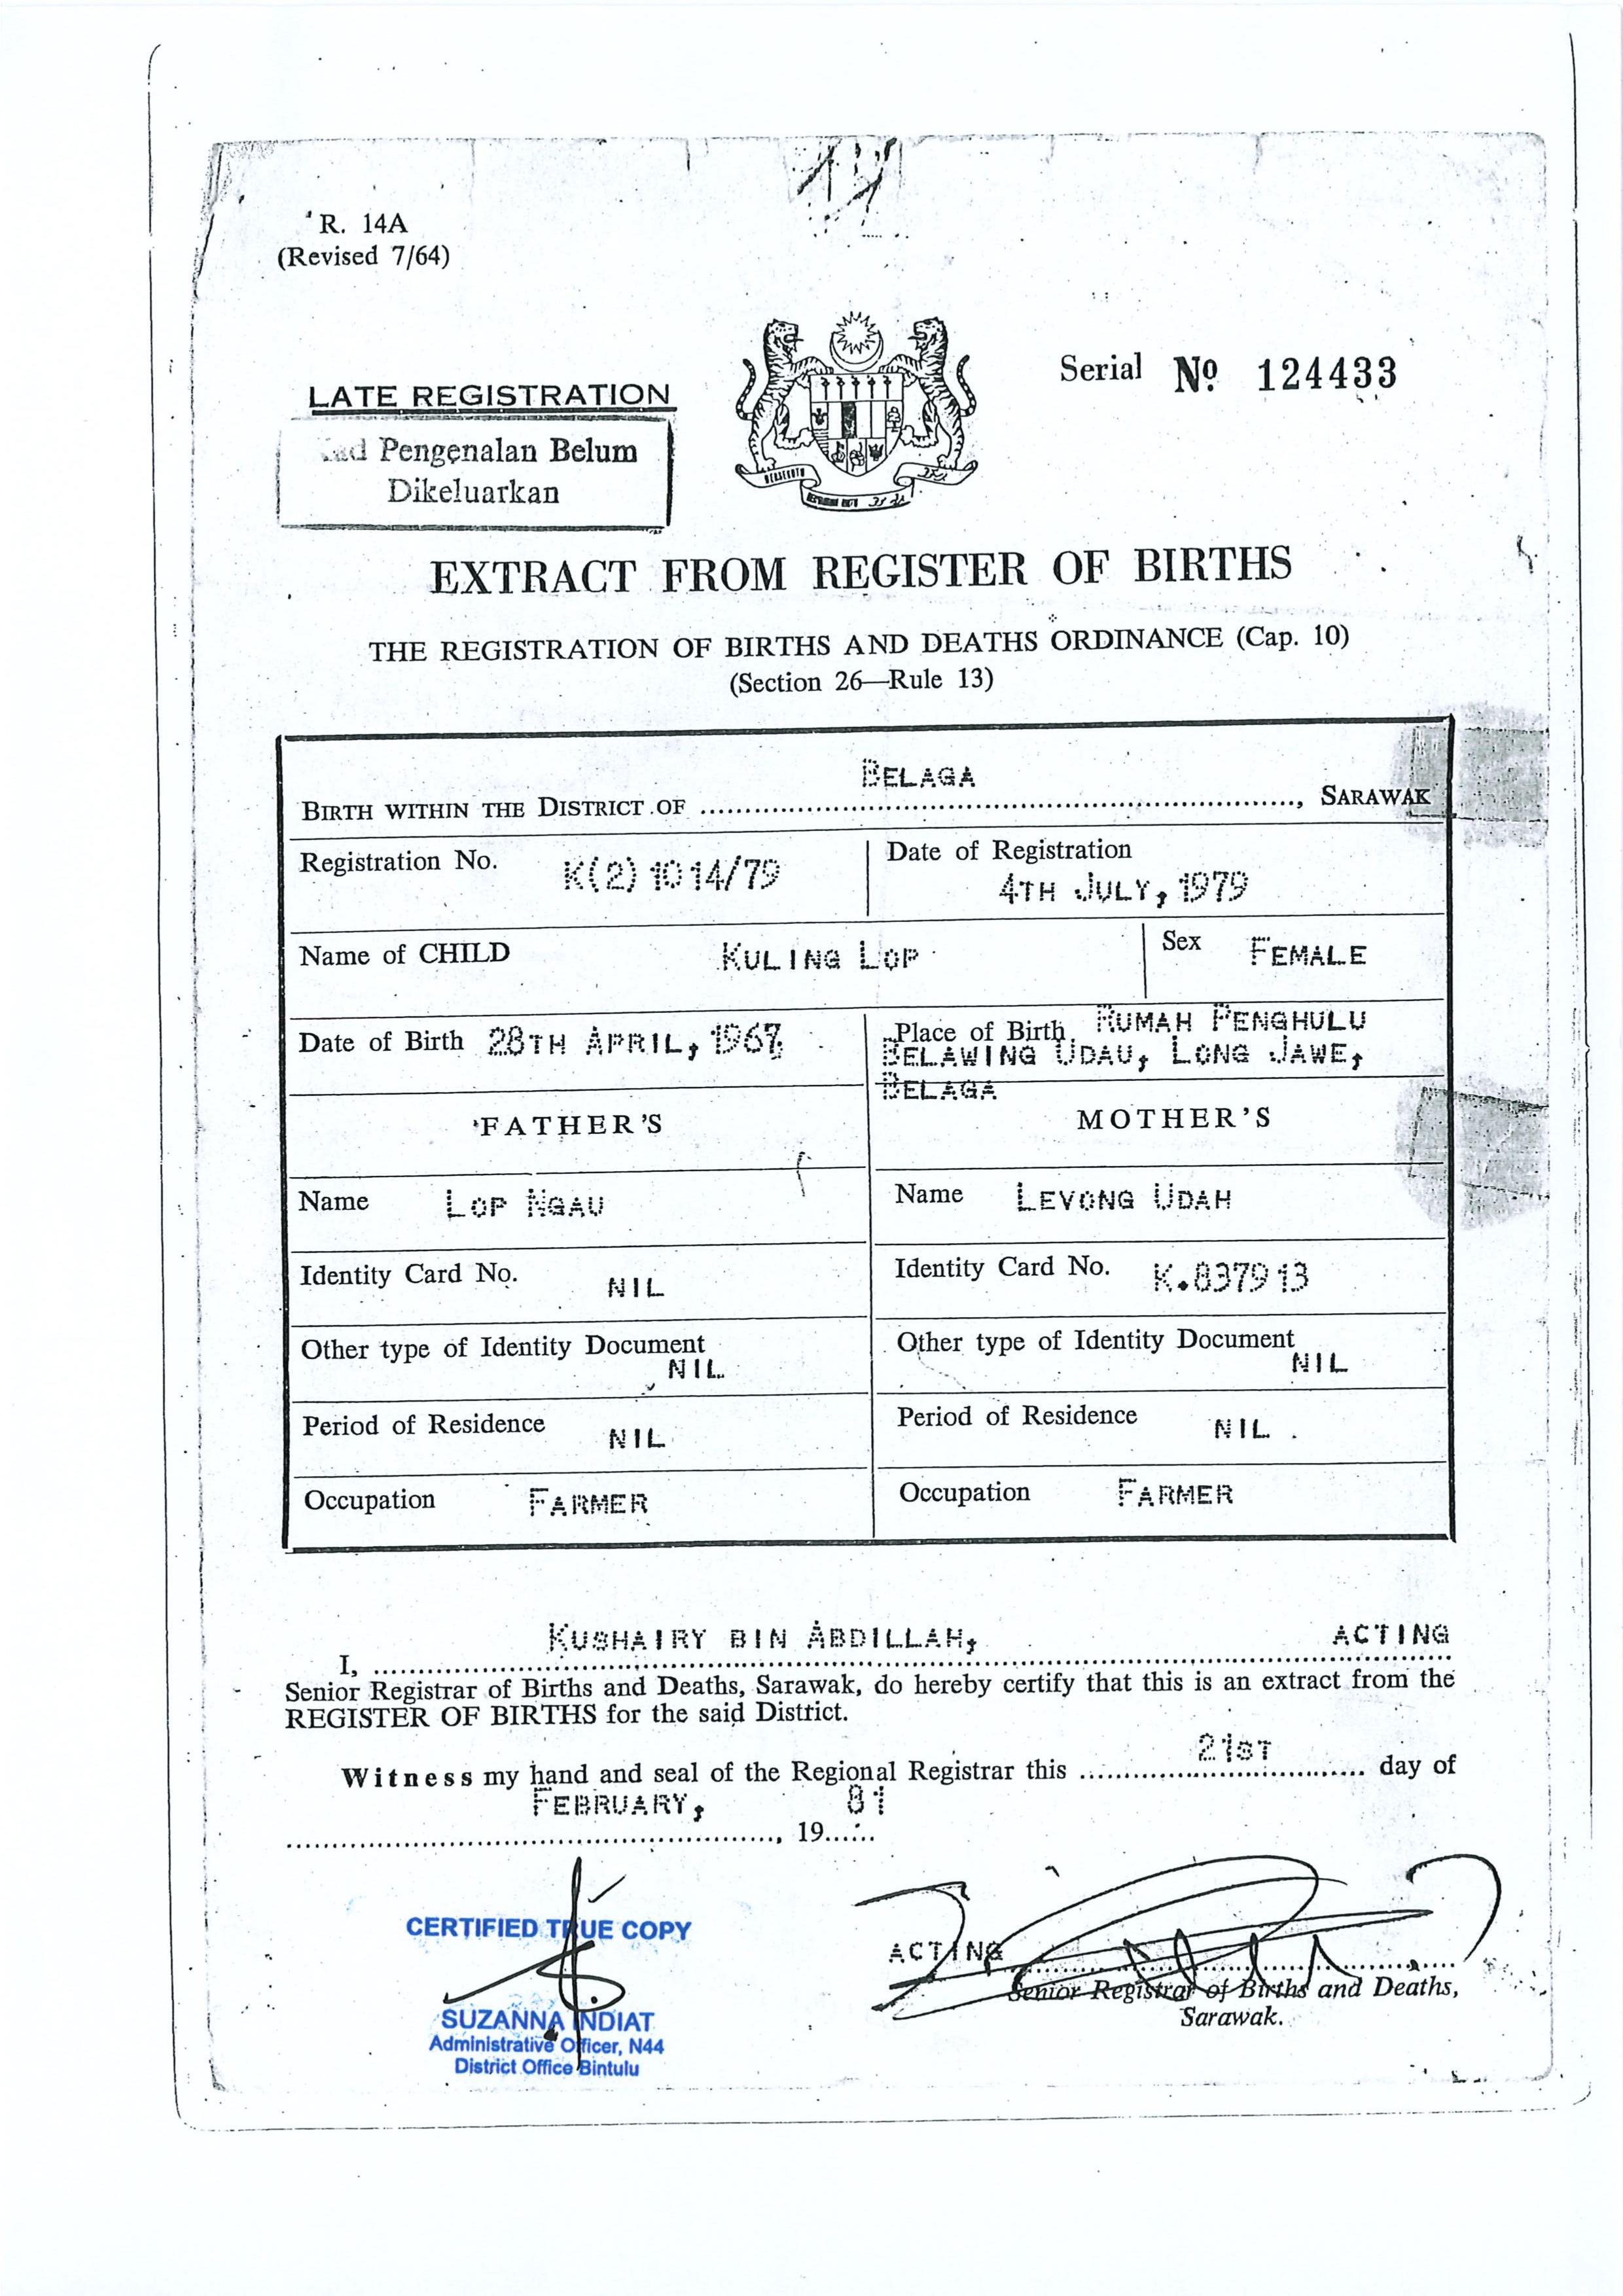 R. 14A
(Revised 7/64)
LATE REGISTRATION
Serial Nº 124433
Pengenalan Belum
Dikeluarkan
EXTRACT FROM REGISTER OF BIRTHS
THE REGISTRATION OF BIRTHS AND DEATHS ORDINANCE (Cap. 10)
(Section 26—Rule 13)
BIRTH WITHIN THE DISTRICT OF BELAGA, SARAWAK
Registration No. K(2)1014/79
Date of Registration
4TH JULY, 1979
Name of CHILD KULING LOP
Sex FEMALE
Date of Birth 28TH APRIL, 1967
Place of Birth RUMAH PENGHULU
BELAWING UDAU, LONG JAWE,
BELAGA
FATHER'S
MOTHER'S
Name LOP NGAU
Name LEVONG UDAH
Identity Card No. NIL
Identity Card No. K.837913
Other type of Identity Document
NIL
Other type of Identity Document
NIL
Period of Residence NIL
Period of Residence NIL
Occupation FARMER
Occupation FARMER
I, KUSHAIRY BIN ABDILLAH, ACTING
Senior Registrar of Births and Deaths, Sarawak, do hereby certify that this is an extract from the
REGISTER OF BIRTHS for the said District.
Witness my hand and seal of the Regional Registrar this 21ST day of
FEBRUARY, 1981
CERTIFIED TRUE COPY
SUZANNA INDIAT
Administrative Officer, N44
District Office Bintulu
ACTING
Senior Registrar of Births and Deaths,
Sarawak.